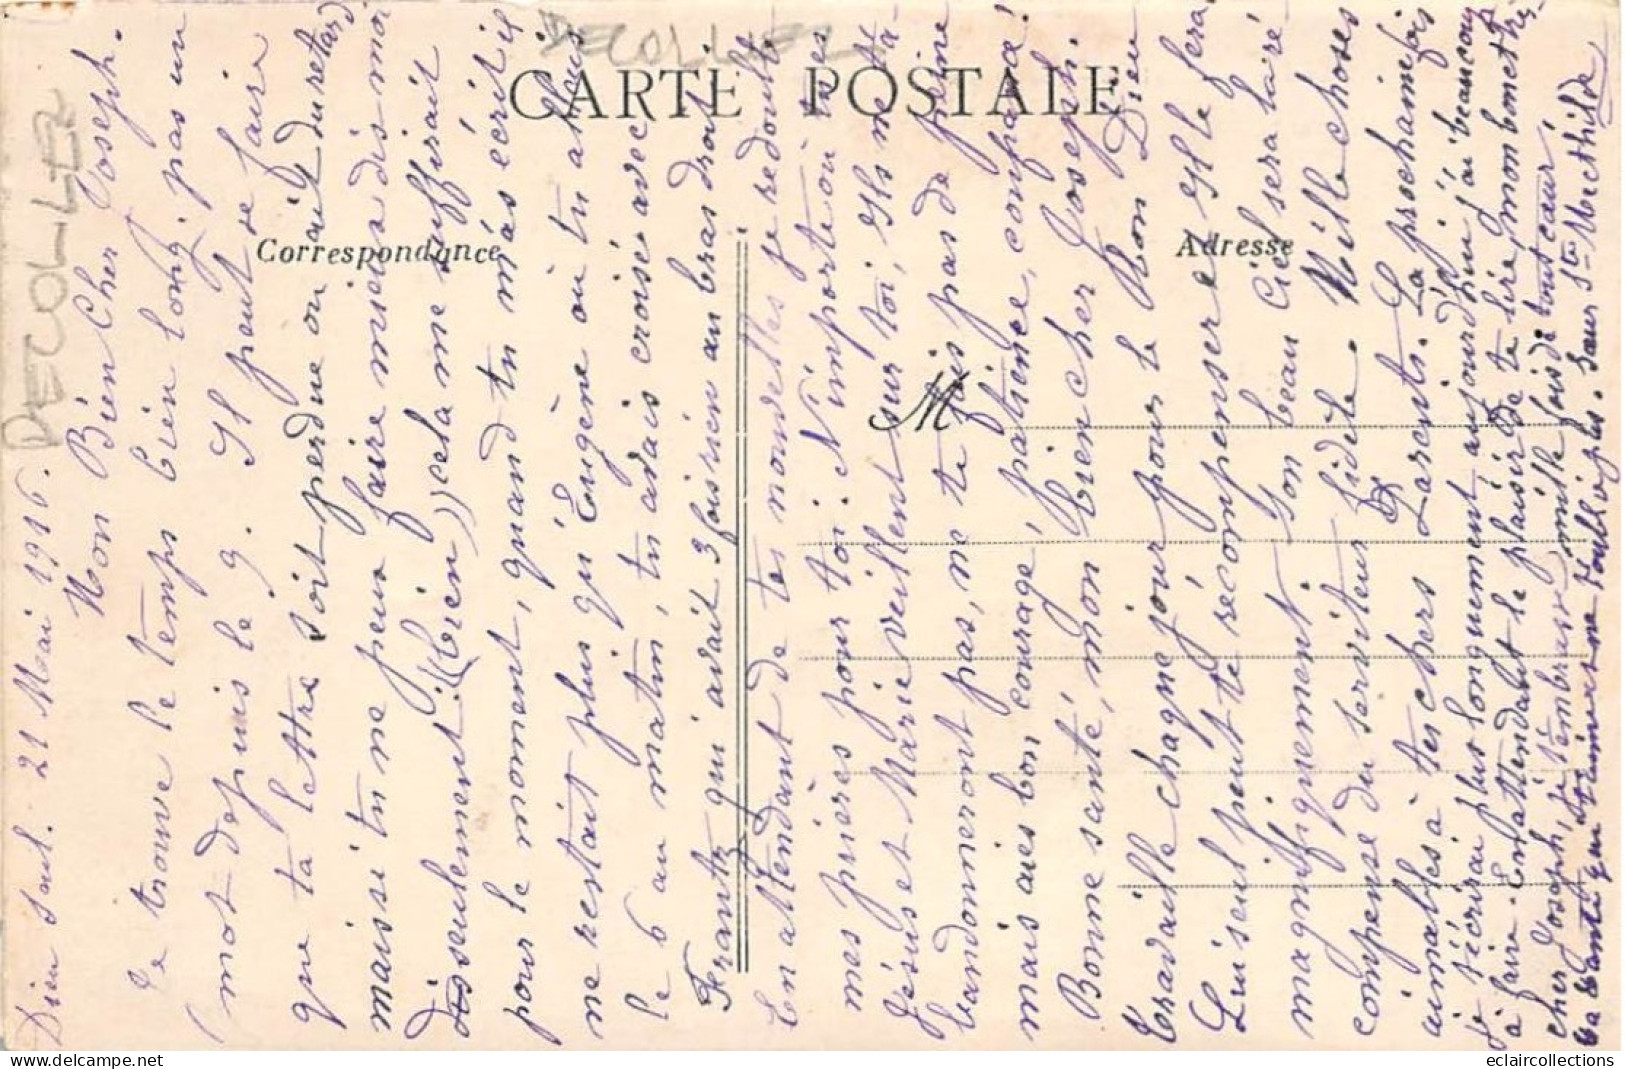 DECOLLEZ
DECOLLEZ
CARTE POSTALE
Correspondance
Adresse
M
Dieu Seul. 21 Mai 1916.
Mon Bien Cher Joseph.
Je trouve le temps bien long, pas un
mot depuis le 9. Il peut se faire
que ta lettre soit perdue ou ait du retard
mais si tu ne peux faire mieux dis-moi
seulement: ((bien)) cela me suffirait
pour le moment, quand tu m'as écrit il
ne restait plus qu'Eugène où tu allais
le 6 au matin, tu avais croisé avec
Frantz qui avait 3 fois rien au bras droit
En attendant de tes nouvelles je redouble
mes prières pour toi. N'importe où tu es
Jésus et Marie veillent sur toi, Ils ne t'a-
bandonneront pas, ne te fais pas de peine
mais aies bon courage, patience, confiance!
Bonne santé, mon bien cher Joseph.
Travaille chaque jour pour le Bon Dieu
Lui seul peut te récompenser et Il le fera
magnifiquement. Son beau Ciel sera la ré-
compense du serviteur fidèle. Mille choses
aimables à tes chers Parents. La prochaine fois
je t'écrirai plus longuement, aujourd'hui j'ai beaucoup
à faire. En attendant le plaisir de te lire, mon bon et très-
cher Joseph, je t'embrasse mille fois de tout cœur,
ta Tante qui t'aime et ne t'oublie pas. Sœur Ste Mechtilde